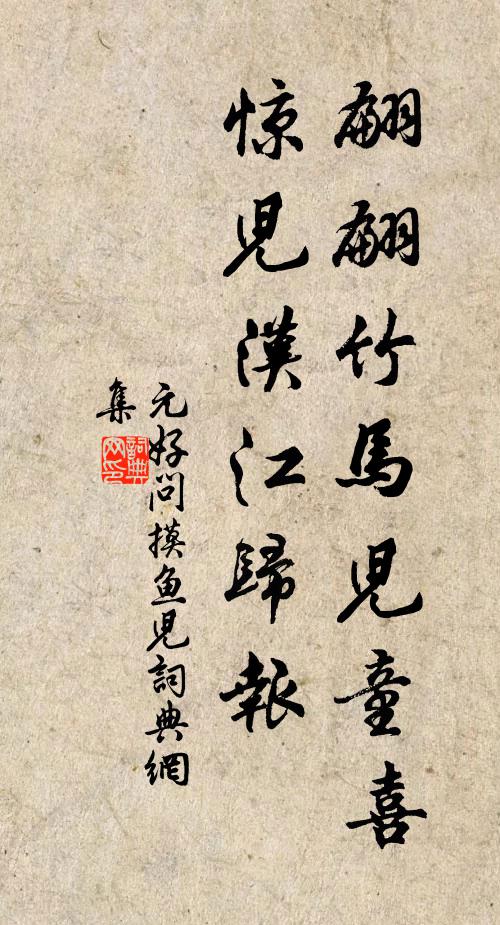 翩翩竹馬兒童喜
惊見漢江歸報
元好问摸鱼兒詞典網
集
詞典
网印